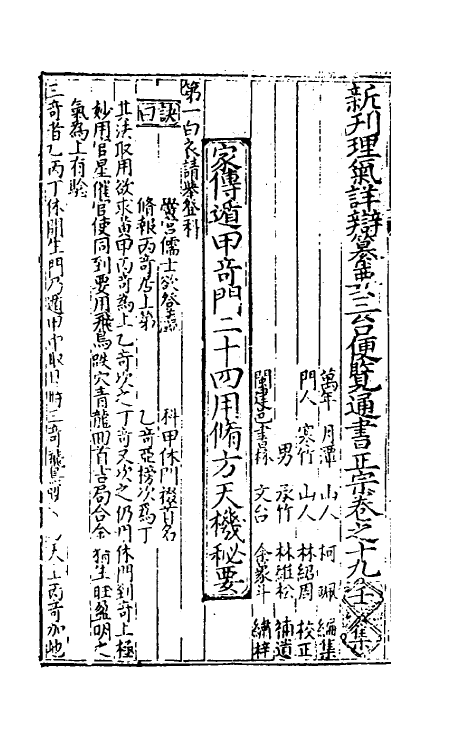 新刊理氣詳辯纂要三台便覽通書正宗卷之十九 集
萬年 月潭 山人 柯珮 編集
門人 寒竹 山人 林紹周 校正
男 承竹 林維松 補遺
閩建邑書林 文台 余象斗 繡梓
家傳遁甲奇門二十四用脩方天機秘要
第一白衣請舉登科
訣曰
黌宮儒士欲登 科甲休門掇首名
脩報丙奇居上第 乙奇亞榜次為丁
其法取用欲求黃甲丙奇為上乙奇次之丁奇又次之仍用休門到奇上極
妙用官星催官使同到要用飛鳥跌穴青龍回首占局合令 生旺盤明之
氣為上有驗
三奇者乙丙丁休開生門乃遁甲中取用時三奇 天上丙奇加地